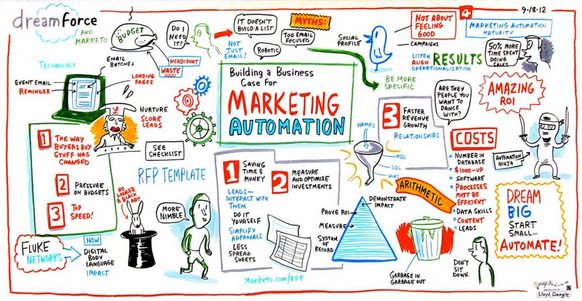 dreamforce
AND MARKETO
TECHNOLOGY
BUDGET
EMAIL
BATCHES
LANDING
PAGES
EVENT EMAIL
REMINDER
DO I
NEED
IT?
HEADCOUNT
WASTE
IT DOESN'T
BUILD A LIST
MYTHS:
TOO EMAIL
FOCUSED
NOT JUST
EMAIL!
ROBOTIC
SOCIAL
PROFILE
NOT ABOUT
FEELING
GOOD
4
CAMPAIGNS
LISTEN
ALIGN
OPERATIONALIZATION
RESULTS
BE MORE
SPECIFIC
9-18-12
MARKETING AUTOMATION
MATURITY
50% MORE
TIME SPENT
DOING
AMAZING
ROI
Building a Business
Case For
MARKETING
AUTOMATION
NURTURE
SCORE
LEADS
SEE
CHECKLIST
RFP TEMPLATE
1 THE WAY
BUYERS BUY
STUFF HAS
CHANGED
2 PRESSURE
ON BUDGETS
3 TOP
SPEED!
NO LONGER
A BLACK
ART
MORE
NIMBLE
FLUKE
NETWORKS
NOW
DIGITAL
BODY
LANGUAGE
IMPACT
1 SAVING
TIME &
MONEY
LEADS-
INTERACT WITH
THEM
DO IT
YOURSELF
SIMPLIFY
APPROVALS
LESS
SPREAD
SHEETS
2 MEASURE
AND OPTIMIZE
INVESTMENTS
Marketo.com/RFP
3 FASTER
REVENUE
GROWTH
RELATIONSHIPS
NAMES
MQL
SQL
WINS
ARE THEY
PEOPLE YOU
WANT TO
DANCE
WITH?
ARITHMETIC
DEMONSTRATE
IMPACT
PROVE ROI
MEASURE
SYSTEM
OF RECORD
GARBAGE IN
GARBAGE OUT
COSTS
NUMBER IN
DATABASE
$1000-UP
SOFTWARE
PROCESSES
MUST BE
EFFICIENT
DATA SKILLS
CONTENT
LEADS
DON'T
SIT
DOWN
AUTOMATION
NINJA
DREAM
BIG
START
SMALL-
AUTOMATE!
Lloyd Dangle